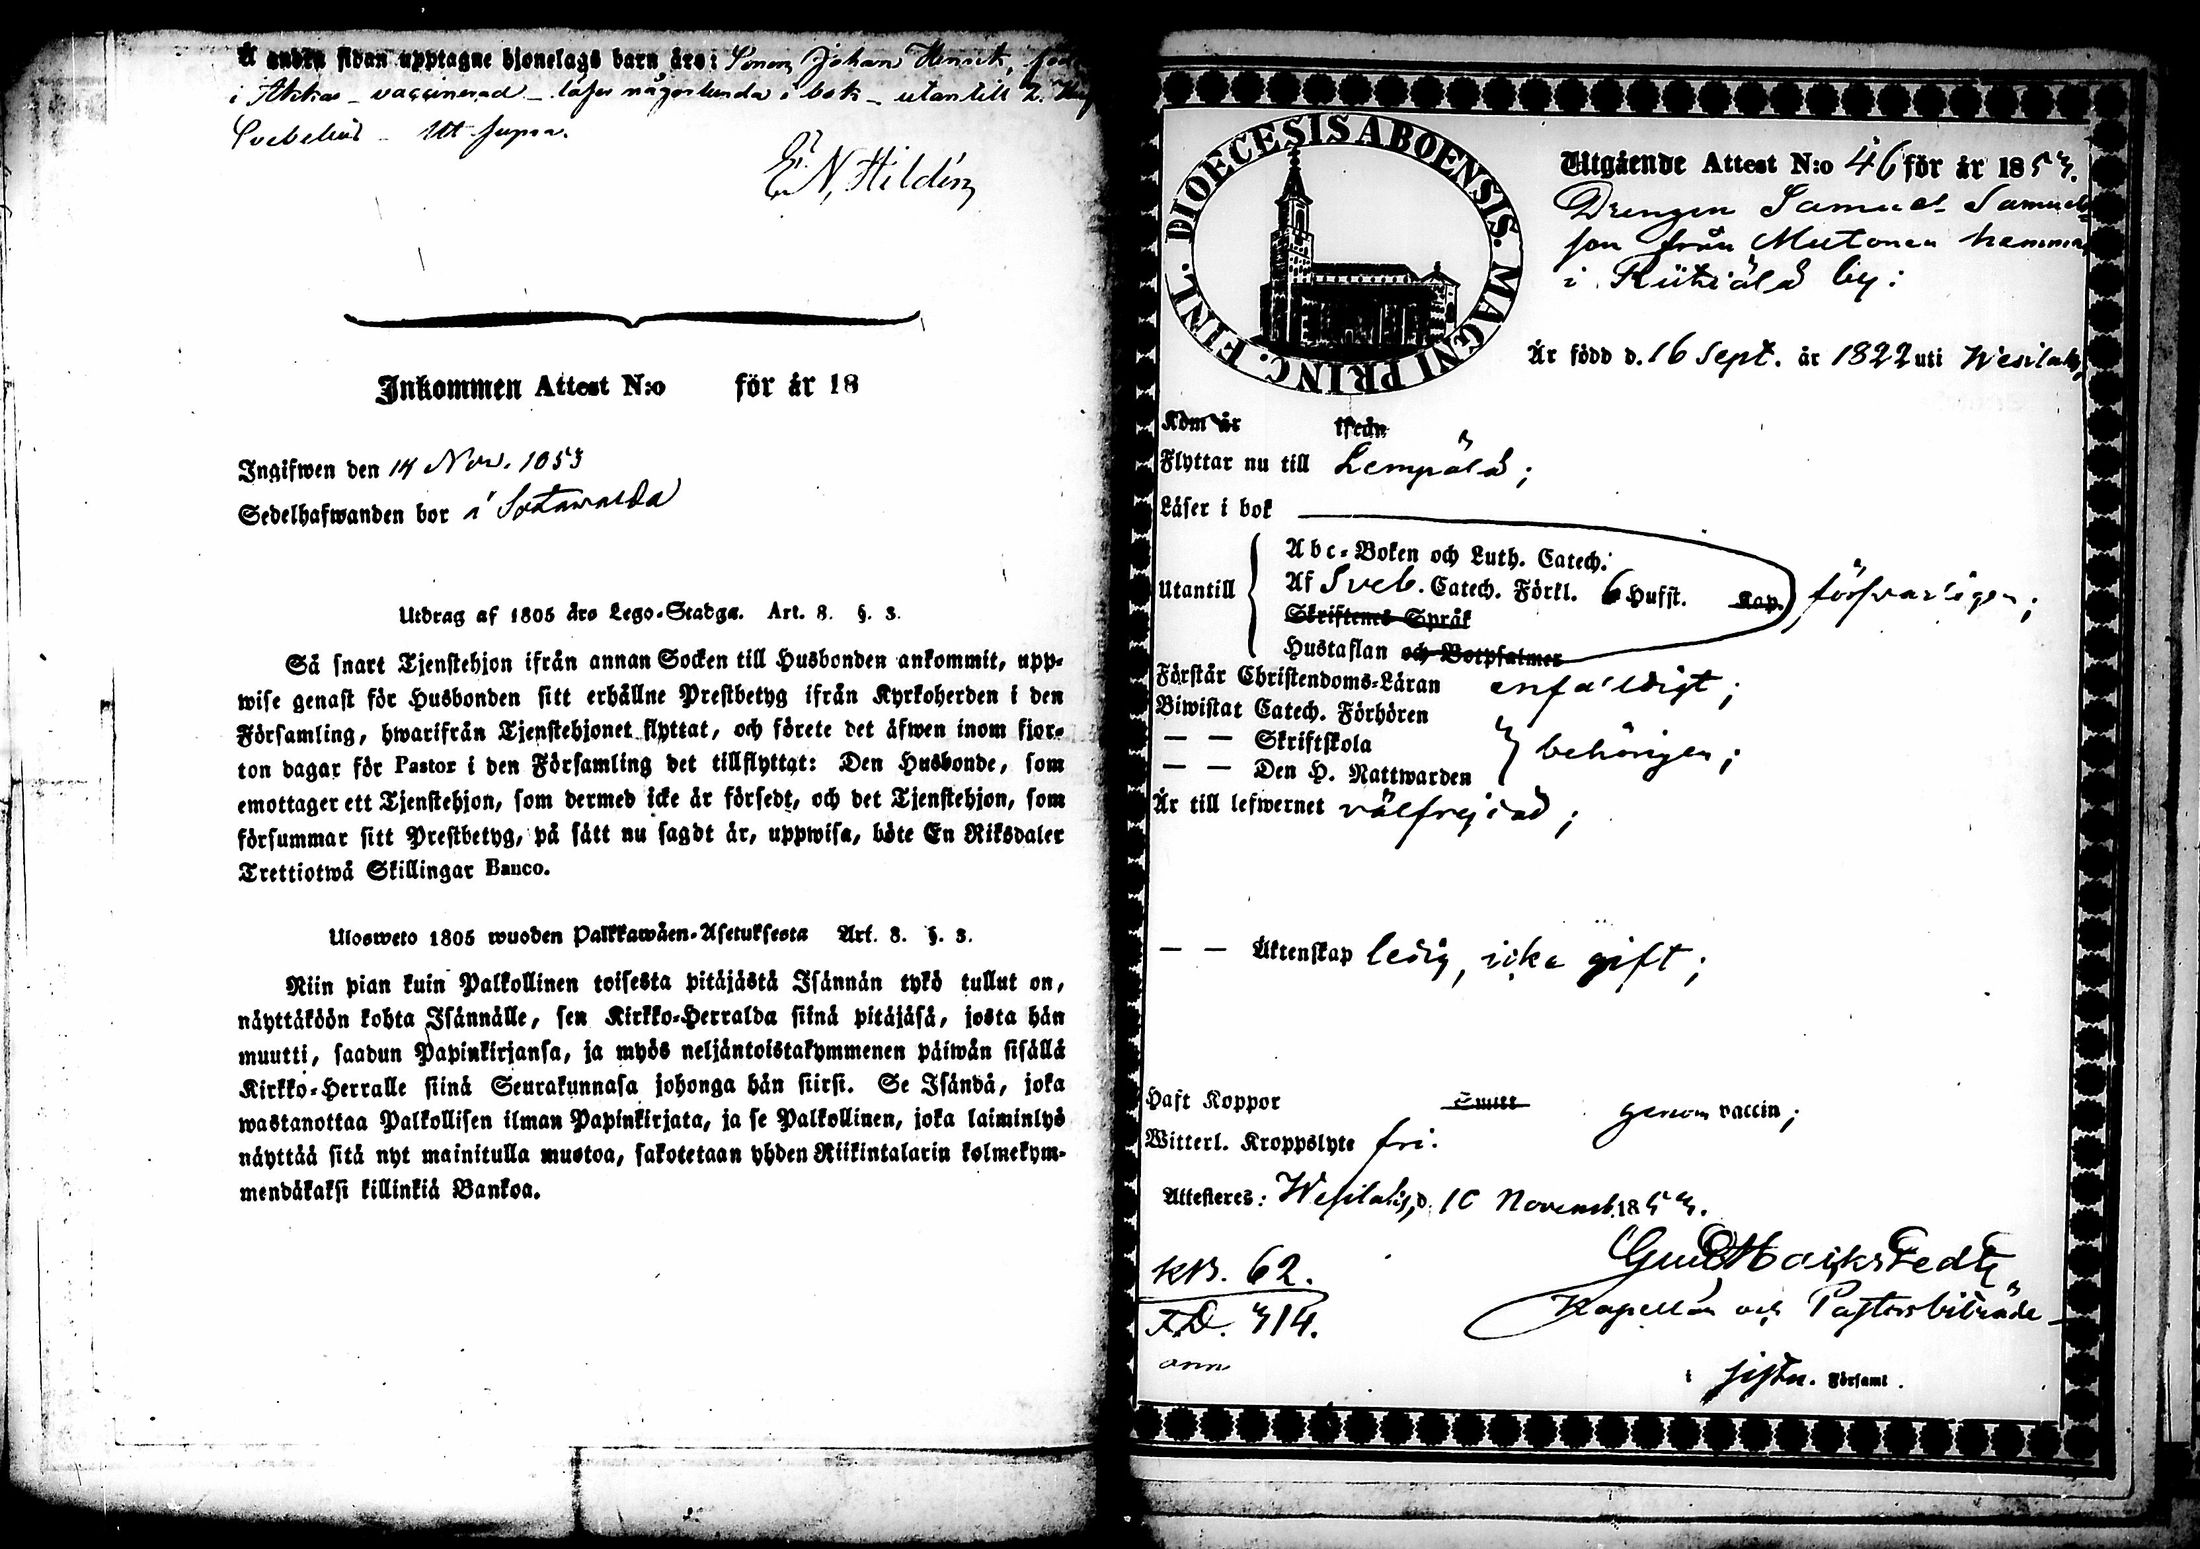 Å andra sidan upptagne hjonelags barn äro: Sonen Johan Henrik,
i Akkas – vaccinerad – läser någorlunda i bok – utantill 2.
Svebelius – Ut supra.
E. N. Hildén
Inkommen Attest N:o för år 18
Ingifwen den 14 Nov. 1853
Sedelhafwanden bor i Sotavalda
Utdrag af 1805 års Lego-Stadga. Art. 8. §. 3.
Så snart Tjenstehjon ifrån annan Socken till Husbonden ankommit, upp-
wise genast för Husbonden sitt erhållne Prestbetyg ifrån Kyrkoherden i den
Församling, hwarifrån Tjenstehjonet flyttat, och förete det äfwen inom fjor-
ton dagar för Pastor i den Församling det tillflyttat: Den Husbonde, som
emottager ett Tjenstehjon, som dermed icke är försedt, och det Tjenstehjon, som
försummar sitt Prestbetyg, på sätt nu sagdt är, uppwisa, böte En Riksdaler
Trettiotwå Skillingar Banco.
Ulosweto 1805 wuoden Palkkawäen-Asetuksesta Art. 8. §. 3.
Niin pian kuin Palkollinen toisesta pitäjästä Isännän tykö tullut on,
näyttäköön kohta Isännälle, sen Kirkko-Herralda siinä pitäjäsä, josta hän
muutti, saadun Papinkirjansa, ja myös neljäntoistakymmenen päiwän sisällä
Kirkko-Herralle siinä Seurakunnasa johonga hän siirsi. Se Isändä, joka
wastanottaa Palkollisen ilman Papinkirjata, ja se Palkollinen, joka laiminlyö
näyttää sitä nyt mainitulla muotoa, sakotetaan yhden Riikintalarin kolmekym-
mendäkaksi killinkiä Bankoa.
DIOECESIS ABOENSIS. MAGNI PRINC. FINL.
Utgående Attest N:o 46 för år 1853.
Drengen Samuel Samuels-
son från Mutonen hemman
i Kiikiälä by:
Är född d. 16 Sept. år 1822 uti Wesilaks,
Kom år ifrån
Flyttar nu till Lempälä;
Läser i bok
Utantill
Abc-Boken och Luth. Catech.
Af Sveb. Catech. Förkl. 6 Hufst. Kap.
Skriftenes Språk
Hustaflan och Botpsalmer
försvarligen;
Förstår Christendoms-Läran enfaldigt;
Biwistat Catech. Förhören
— — Skriftskola
— — Den H. Nattwarden
behörigen;
Är till lefwernet välfrejdad;
— — Äktenskap ledig, icke gift;
Haft Koppor Smitt genom vaccin;
Witterl. Kroppslyte fri.
Attesteres: Wesilaks, d. 10 Novemb. 1853.
KB. 62.
F.D. 314.
Kapellan och Pastorsbiträde
i Församl.